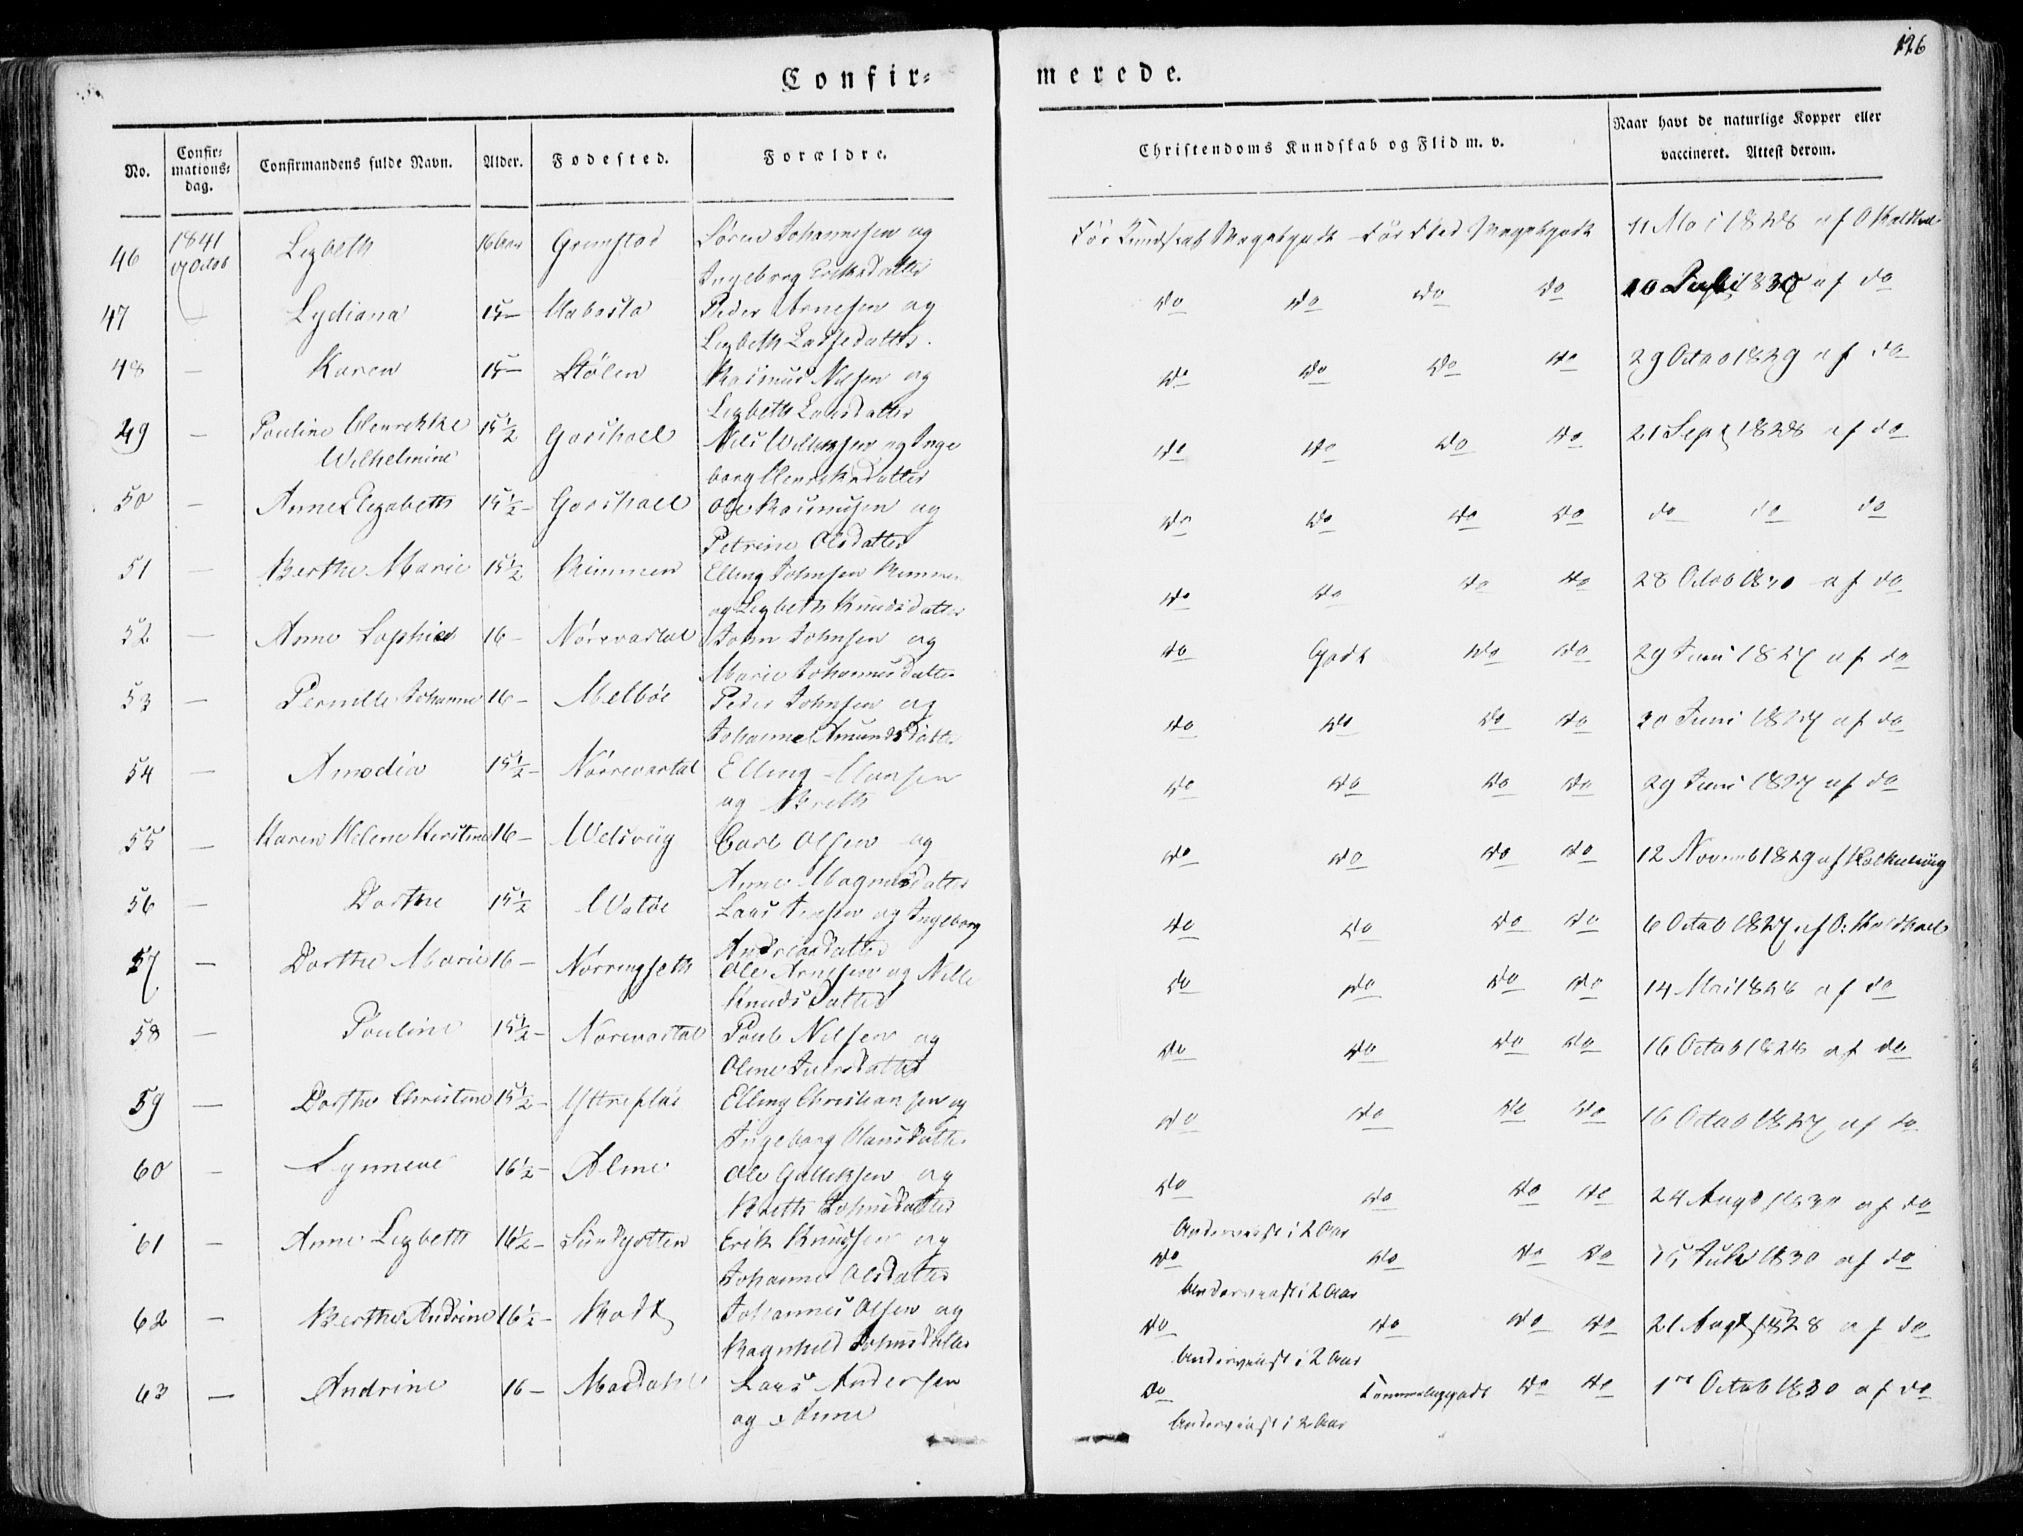 126
Confir=
merede.
No.
Confir=
mations=
dag.
Confirmandens fulde Navn.
Alder.
Fødested.
Forældre.
Christendoms Kundskab og Flid m. v.
Naar havt de naturlige Kopper eller
vaccineret. Attest derom.
46 1841 Lizbeth 16 Aar Grimstad Søren Johannesen og For Kundskab Megetgodt For Flid Megetgodt 11 Mai 1828 af
17 Octob Ingeborg Eriksdatter
47 Lydiana 15 – Habostad Peder Arnesen og do do do do 10 Juli 1830 af do
Lizbeth Ladsedatter.
48 – Karen 15 – Stølen Rasmus Nilsen og do do do do 29 Octob 1829 af do
Lizbeth Larsdatter
49 – Pouline Henrikke 15½ Gorshael Nils Willumsen og Inge do do do do 21 Sept 1828 af do
Wilhelmine borg Henriksdatter
50 – Anne Elizabeth 15½ – Gorshael Ole Rasmusen og do do do do do do do
Petrine Olsdatter
51 – Berthe Marie 15½ Rimmen Elling Johnsen Rimmen do do do do 28 Octob 1830 af do
og Lizbeth Knudsdatter
52 – Anne Sophie 16 – Nørevastad John Johnsen og do Godt do do 29 Juni 1827 af do
Marie Johannesdatter
53 – Pernille Johanne 16 – Melbøe Peder Johnsen og do do do do 20 Juni 1827 af do
Johanne Amundsdatter
54 – Amodia 15½ – Nørrevastad Elling Hansen do do do do 29 Juni 1827 af do
og Breth
55 – Karen Helene Kirstine 16 – Welsviig Carl Olsen og do do do do 12 Novemb 1829 af
Anne Magnusdatter
56 – Dorthe 15½ Watøe Lars Jensen og Ingeborg do do do do 6 Octob 1827 af
Andreasdatter
57 – Dorthe Marie 16 – Norringseth Ole Arnesen og Nille do do do do 14 Mai 1828 af do
Knudsdatter
58 – Pouline 15½ – Norevastad Poul Nilsen og do do do do 16 Octob 1828 af do
Oline Iversdatter
59 – Dorthe Christine 15½ – Yttreflaa Elling Christiansen og do do do do 16 Octob 1827 af do
Ingeborg Hansdatter
60 – Synneve 16½ – Alme Ole Gulliksen og do do do do 24 Augs 1830 af do
Breth Johnsdatter Undervisst i 2 Aar
61 – Anne Lizbeth 16½ – Sundgotten Erik Knudsen og do do do do 15 Juli 1830 af do
Johanne Olsdatter Undervisst i 2 Aar
62 – Berthe Andrine 16½ – Rødt Johannes Olsen og do do do do 21 Augst 1828 af do
Ragnhild Johnsdatter Undervisst i 2 Aar
63 – Andrine 16 – Mordahl Lars Andersen do Temmeliggodt do do 1ste Octob 1830 af do
og Anne Undervisst i 2 Aar